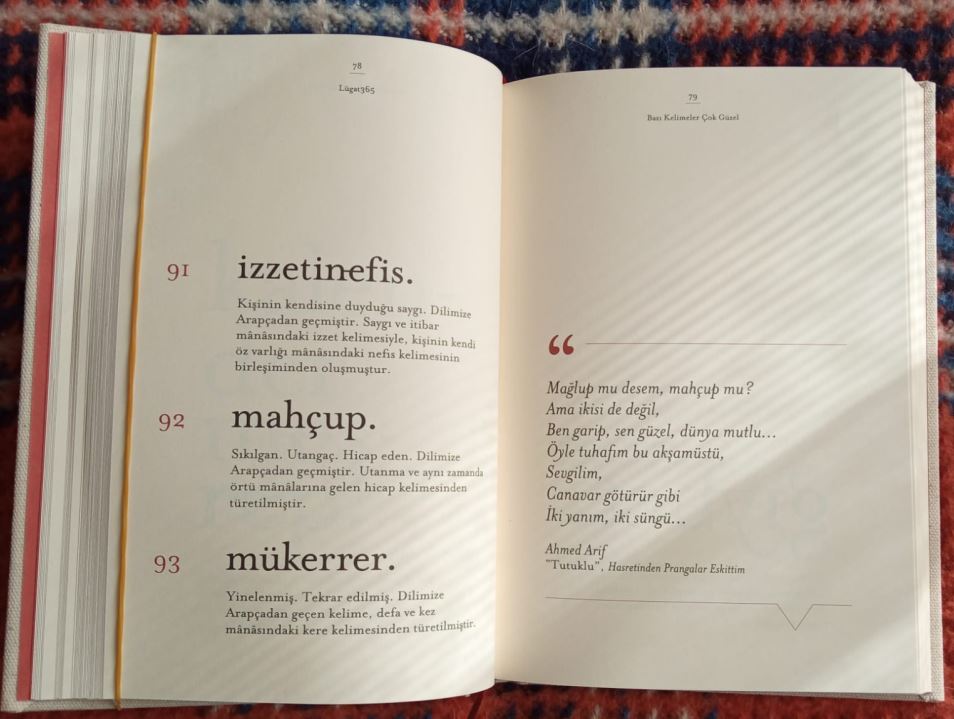 78
Lûgat365
91
izzetinefis.
Kişinin kendisine duyduğu saygı. Dilimize
Arapçadan geçmiştir. Saygı ve itibar
mânâsındaki izzet kelimesiyle, kişinin kendi
öz varlığı mânâsındaki nefis kelimesinin
birleşiminden oluşmuştur.
92
mahçup.
Sıkılgan. Utangaç. Hicap eden. Dilimize
Arapçadan geçmiştir. Utanma ve aynı zamanda
örtü mânâlarına gelen hicap kelimesinden
türetilmiştir.
93
mükerrer.
Yinelenmiş. Tekrar edilmiş. Dilimize
Arapçadan geçen kelime, defa ve kez
mânâsındaki kere kelimesinden türetilmiştir.
79
Bazı Kelimeler Çok Güzel
“
Mağlup mu desem, mahçup mu?
Ama ikisi de değil,
Ben garip, sen güzel, dünya mutlu...
Öyle tuhafım bu akşamüstü,
Sevgilim,
Canavar götürür gibi
İki yanım, iki süngü...
Ahmed Arif
"Tutuklu", Hasretinden Prangalar Eskittim